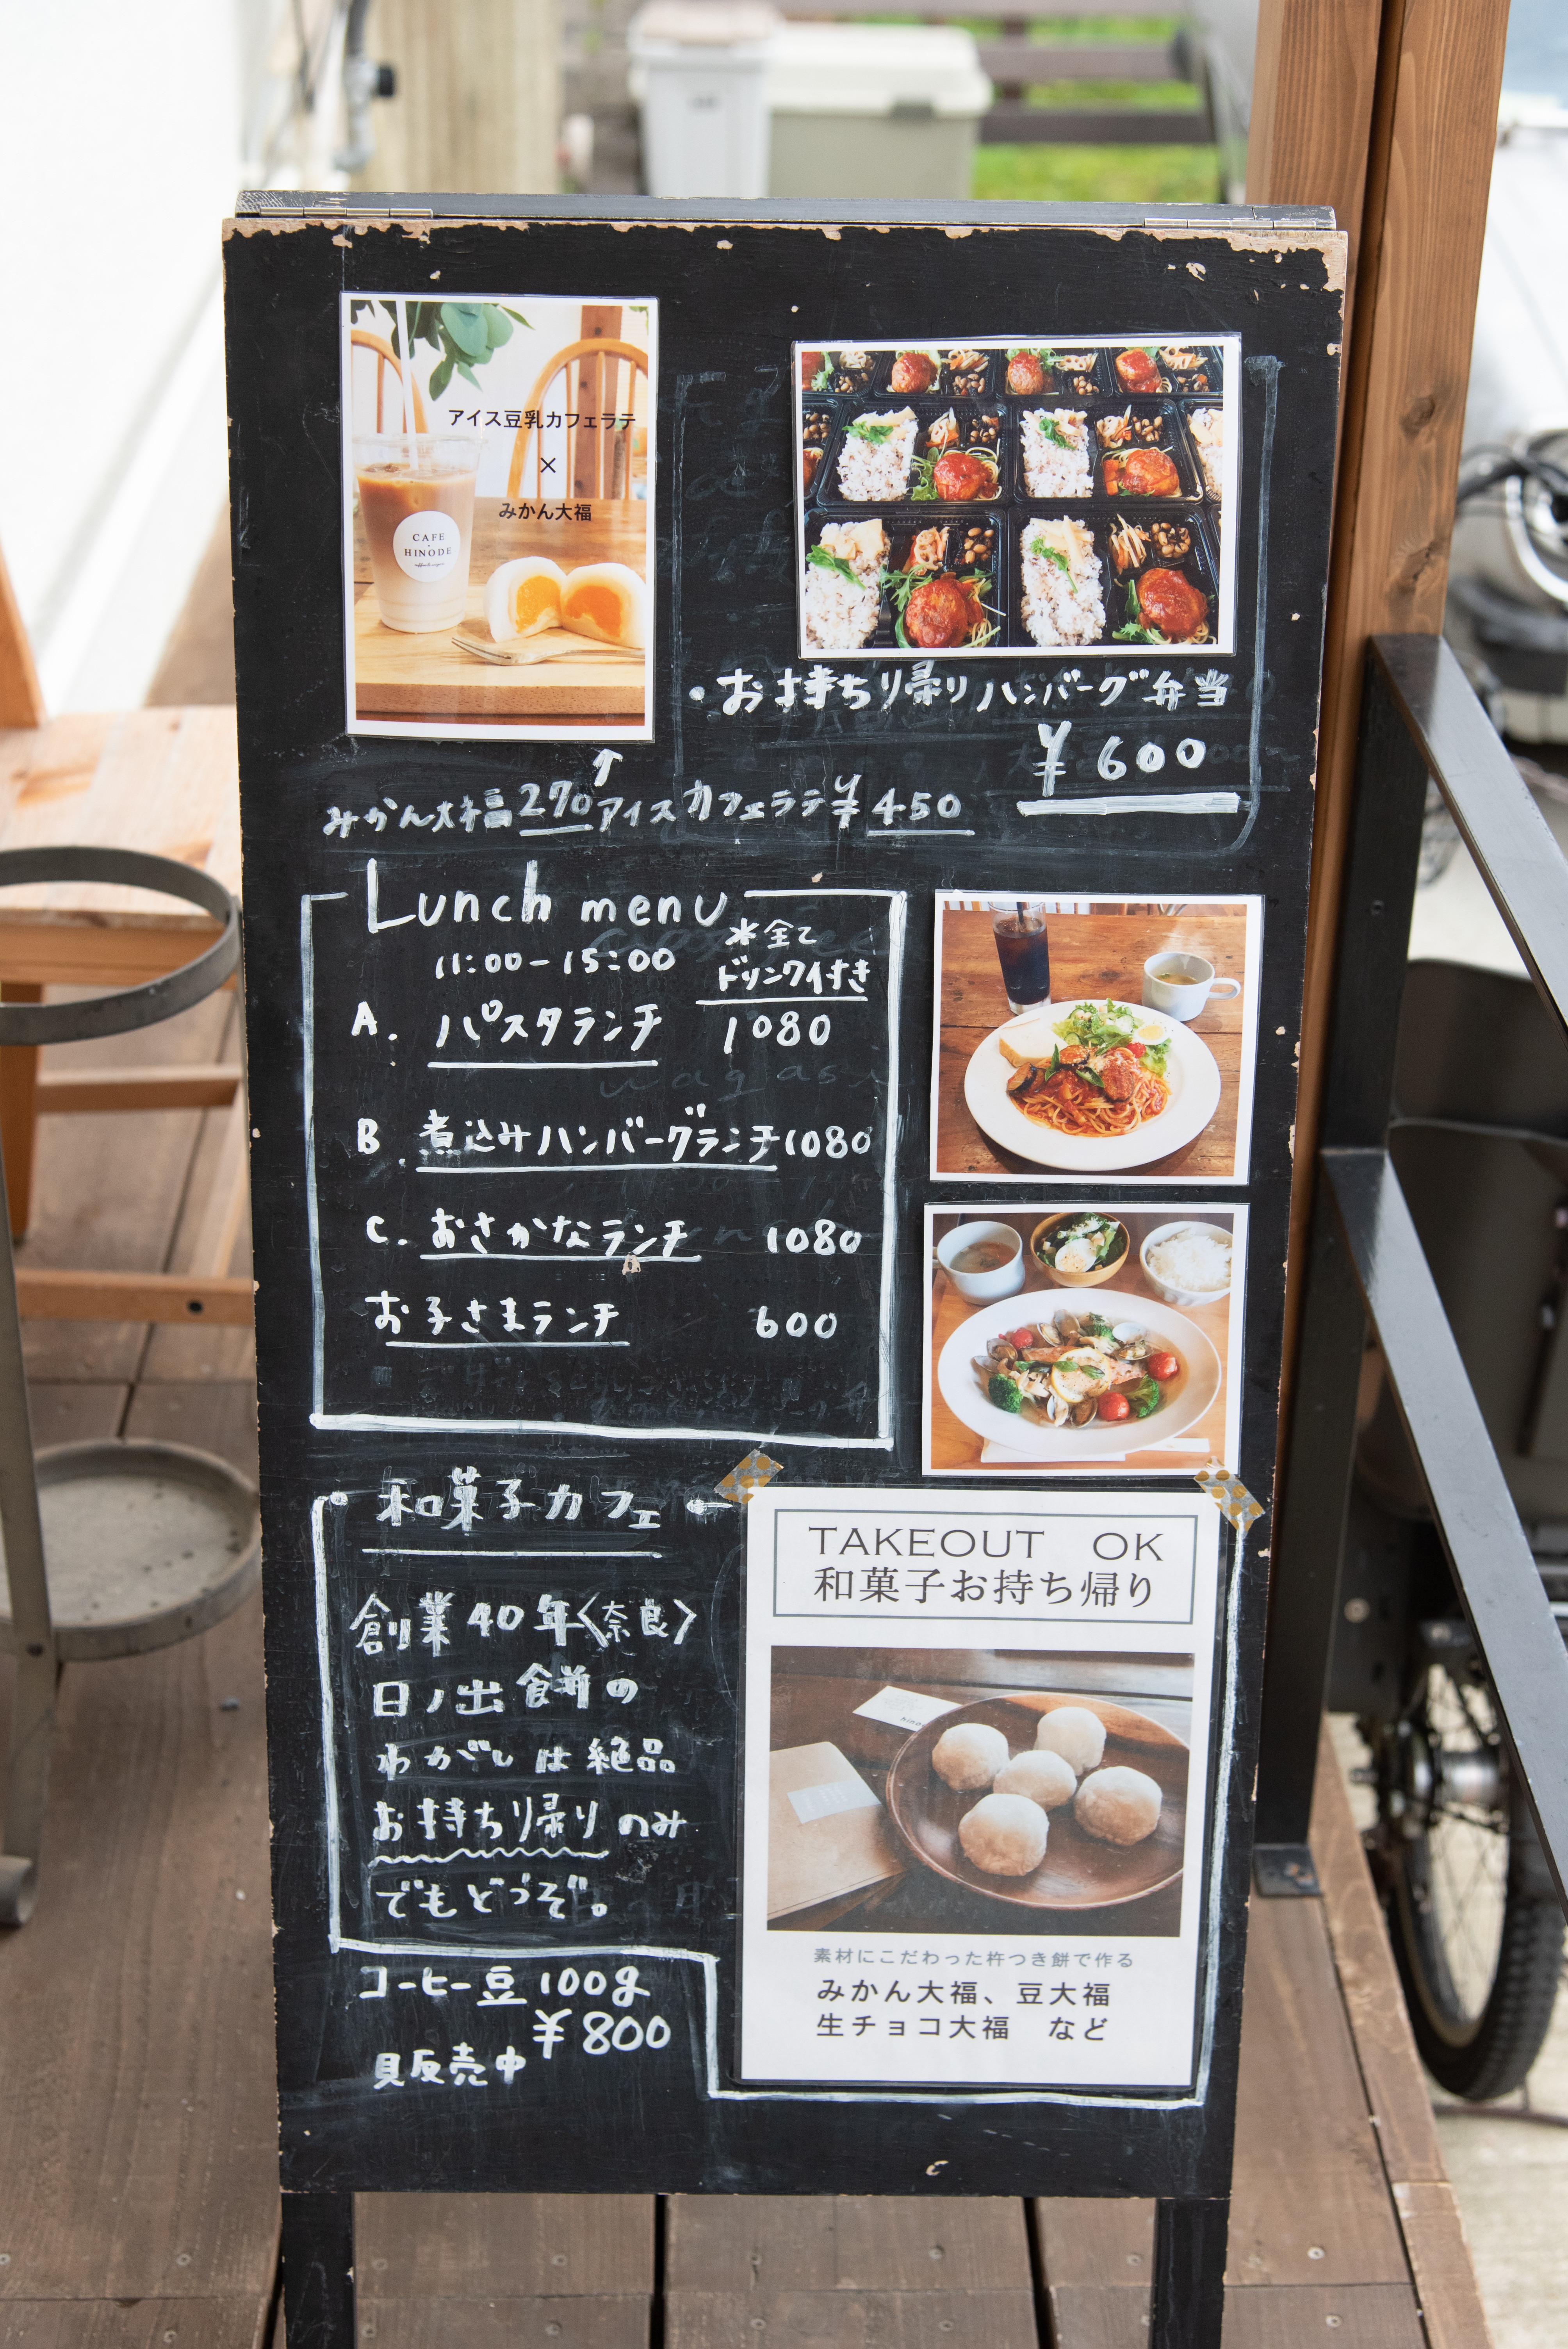 アイス豆乳カフェラテ
×
みかん大福
CAFE
HINODE
・お持ち帰りハンバーグ弁当
¥600
↑
みかん大福270 アイスカフェラテ¥450
Lunch menu
11:00-15:00
*全て
ドリンク付き
A. パスタランチ 1080
B. 煮込みハンバーグランチ 1080
C. おさかなランチ 1080
お子さまランチ 600
・和菓子カフェ←
創業40年〈奈良〉
日ノ出餅の
わがしは絶品
お持ち帰りのみ
でもどうぞ。
コーヒー豆 100g
¥800
販売中
TAKEOUT OK
和菓子お持ち帰り
素材にこだわった杵つき餅で作る
みかん大福、豆大福
生チョコ大福 など